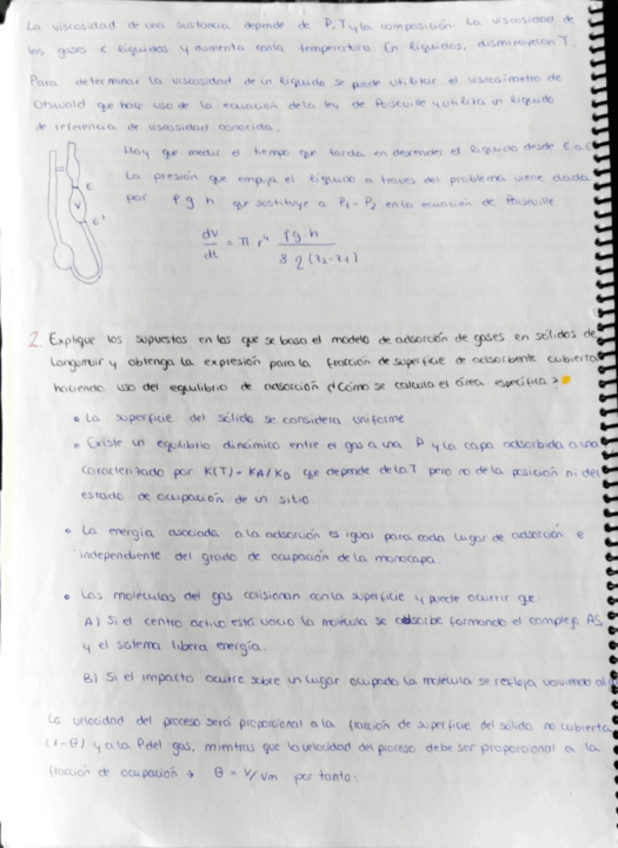 La viscosidad de una sustancia depende de P, T y la composición. La viscosidad de
los gases < líquidos y aumenta con la temperatura. En líquidos, disminuye con T.
Para determinar la viscosidad de un líquido se puede utilizar el viscosímetro de
Ostwald que hace uso de la ecuación de la ley de Poiseuille y utiliza un líquido
de referencia de viscosidad conocida.
Hay que medir el tiempo que tarda en descender el líquido desde E a E'
La presión que empuja el líquido a traves del problema viene dada
por ρ g h que sostituye a P1 - P2 en la ecuación de Poiseuille.
E
V
E'
dV/dt = π r⁴ ρg·h / 8 η (z2-z1)
2. Explique los supuestos en los que se basa el modelo de adsorción de gases en sólidos de
Langmuir y obtenga la expresión para la fracción de superficie de adsorbente cubierta
haciendo uso del equilibrio de adsorción ¿Cómo se calcula el área específica?
• La superficie del sólido se considera uniforme
• Existe un equilibrio dinámico entre el gas a una P y la capa adsorbida a una
caracterizado por K(T) = KA/KD que depende de la T pero no de la posición ni del
estado de ocupación de un sitio.
• La energía asociada a la adsorción es igual para cada lugar de adsorción e
independiente del grado de ocupación de la monocapa.
• Las moléculas del gas colisionan con la superficie y puede ocurrir que:
A) Si el centro activo está vacío la molécula se adsorbe formando el complejo AS
y el sistema libera energía.
B) Si el impacto ocurre sobre un lugar ocupado la molécula se refleja volviendo al
La velocidad del proceso será proporcional a la fracción de superficie del sólido no cubierta
(1-θ) y a la P del gas, mientras que la velocidad del proceso debe ser proporcional a la
fracción de ocupación → θ = V/Vm por tanto: